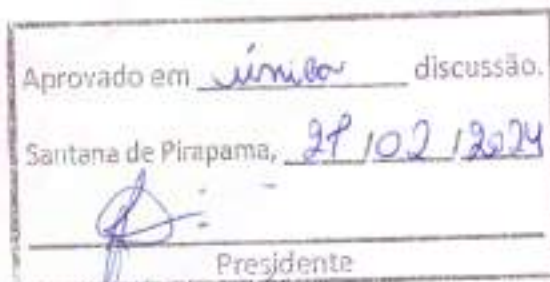 Aprovado em única discussão.
Santana de Pirapama, /02/2024
Presidente